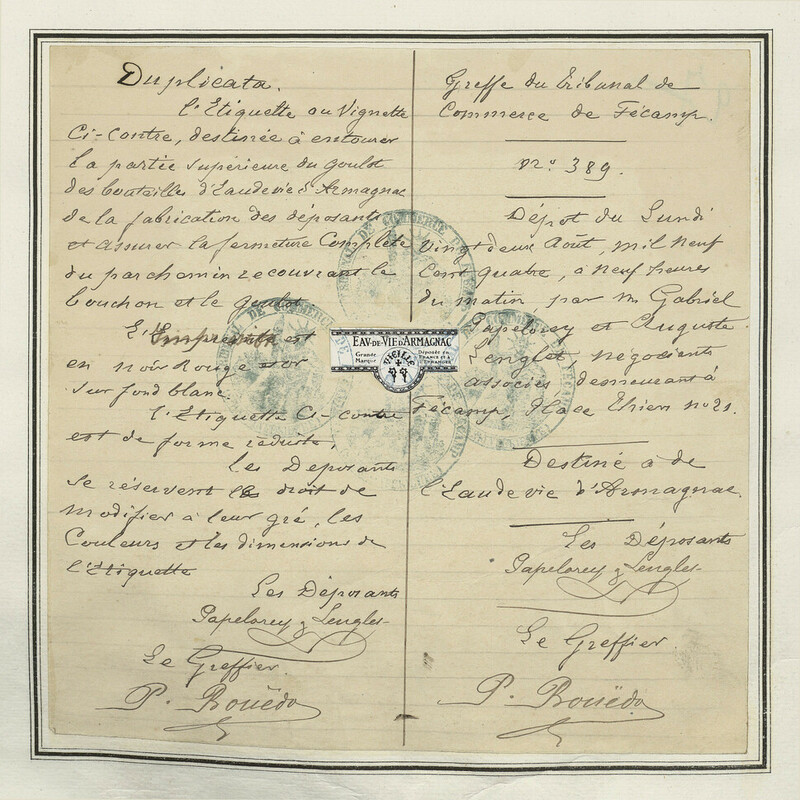 Duplicata.
l'Etiquette ou Vignette
Ci-contre, destinée à entourer
la partie supérieure du goulot
des bouteilles d'Eaudevie d'Armagnac
de la fabrication des déposants
et assurer la fermeture Complète
du parchemin recouvrant le
bouchon et le goulot
L'Empreinte est
en noir Rouge et or
sur fond blanc.
l'Etiquette Ci-contre
est de forme réduite.
Les Deposants
se réservent le droit de
modifier à leur gré, les
Couleurs et les dimensions de
l'étiquette
Les Déposants
Papelorey & Lenglet
Le Greffier.
P. Rouëdo
EAV-DE-VIE D'ARMAGNAC
Grande Marque
VIEILLE
Déposée en FRANCE et à l'ETRANGER
Greffe du Tribunal de
Commerce de Fécamp.
N° 389.
Dépot du Lundi
Vingt deux Août, mil neuf
Cent quatre, à neuf heures
du matin, par M. Gabriel
Papelorey et Auguste
Lenglet négociants
associés demeurant à
Fécamp, Place Thiers n° 21.
Destiné à de
l'Eaudevie d'Armagnac.
Les Déposants
Papelorey & Lenglet
Le Greffier.
P. Rouëdo